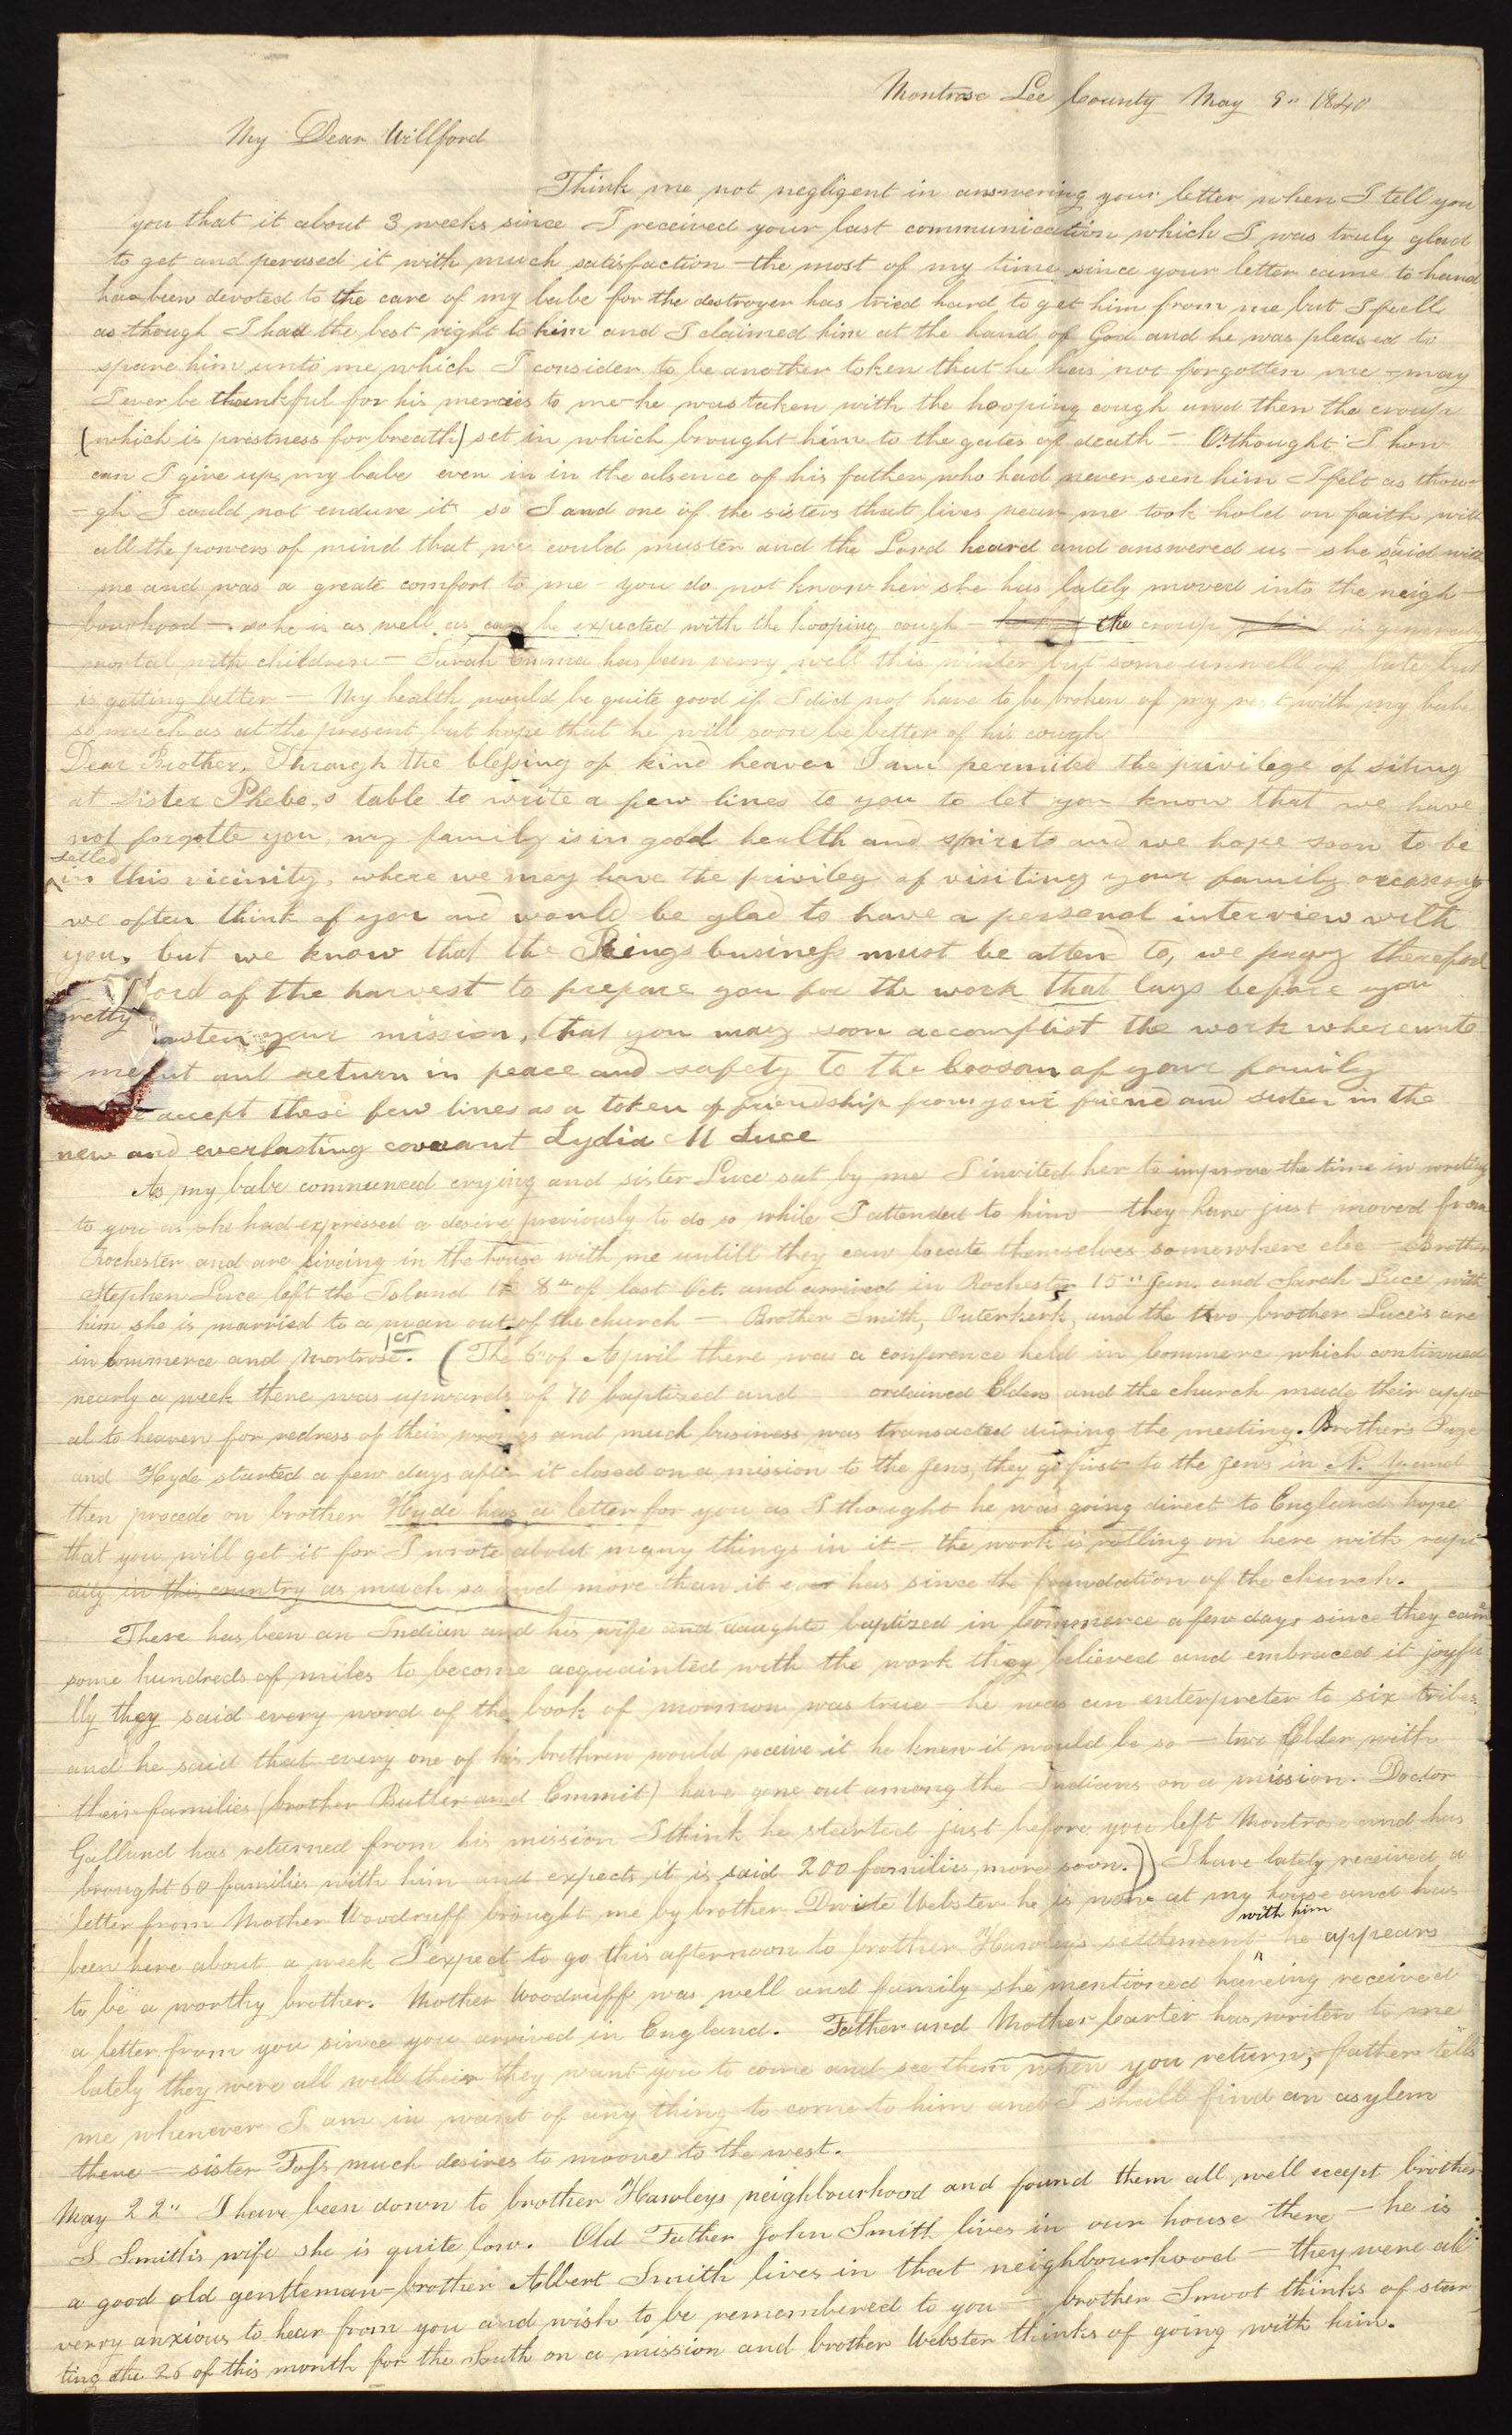 Montrose Lee County May 9" 1840
My Dear Willford
Think me not negligent in answering your letter when I tell you
you that it about 3 weeks since I received your last communication which I was truly glad
to get and perused it with much satisfaction - the most of my time since your letter came to hand
has been devoted to the care of my babe for the destroyer has tried hard to get him from me but I feell
as though I had the best right to him and I claimed him at the hand of God and he was pleased to
spare him unto me which I consider to be another token that he has not forgotten me - may
I ever be thankful for his mercies to me - he was taken with the hooping cough and then the croup
(which is prestness for breath) set in which brought him to the gates of death - O thought I how
can I give up my babe even in in the absence of his father who had never seen him I felt as thou-
-gh I could not endure it so I and one of the sisters that lives near me took hold on faith with
all the powers of mind that we could muster and the Lord heard and answered us - she said with
me and was a greate comfort to me - you do not know her she has lately moved into the neigh-
bourhood - so he is as well as can be expected with the hooping cough - the croup is generaly
mortal with children - Sarah Emma has been verry well this winter but some unwell of late but
is getting better - My health would be quite good if I did not have to be broken of my rest with my babe
so much as at the present but hope that he will soon be better of his cough
Dear Brother, Through the blessing of kind heaven I am permited the privilege of siting
at sister Phebe,s table to write a few lines to you to let you know that we have
not forgotte you, my family is in good health and spirits and we hope soon to be
setled
in this vicinity, where we may have the privileg of visiting your family
we often think of you and would be glad to have a personal interview with
you, but we know that the Kings business must be attend to, we pray therefore
Lord of the harvest to prepare you for the work that lays before you
pretty
hasten your mission, that you may soon accomplist the work whereunto
sent and return in peace and safety to the boosom of your family
accept these few lines as a token of friendship from your friend and sister in the
new and everlasting covenant Lydia M Luce
As my babe commenced crying and sister Luce sat by me I invited her to improve the time in writing
to you as she had expressed a desire previously to do so while I attended to him - they have just moved from
Rochester and are liveing in the house with me untill they can locate themselves somewhere else - Brother
Stephen Luce left the Island the 8" of last Oct. and arrived in Rochester 15" Jan. and Sarah Luce with
him she is married to a man out of the church - Brother Smith, Outerkerk, and the two brother Luce's are
in Commerce and Montrose. (The 6" of April there was a conference held in Commerc which continued
nearly a week there was upwards of 70 baptized and ordained Elders and the church made their appe
al to heaven for redress of their wrongs and much business was transacted during the meeting. Brothers Page
and Hyde started a few days after it closed on a mission to the Jews, they go first to the Jews in N. Y and
then procede on brother Hyde has a letter for you as I thought he was going direct to England hope
that you will get it for I wrote about many things in it - the work is rolling on here with rapi
dity in this country as much so and more than it ever has since the foundation of the church.
There has been an Indian and his wife and daughte baptized in Commerce a few days since they came
some hundreds of miles to become acquainted with the work they believed and embraced it joyfu
lly they said every word of the book of mormon was true - he was an enterpreter to six tribes
and he said that every one of his brethren would receive it he knew it would be so - two Elder with
their families (brother Butler and Emmit) have gone out among the Indians on a mission. Doctor
Galland has returned from his mission I think he started just before you left Montrose and has
brought 60 families with him and expects it is said 200 families more soon.) I have lately received a
letter from Mother Woodruff brought me by brother Dwite Webster he is now at my house and has
with him
been here about a week I expect to go this afternoon to brother Hawley's settlement he appears
to be a worthy brother. Mother Woodruff was well and family she mentioned haveing received
a letter from you since you arrived in England. Father and Mother Carter has writen to me
lately they were all well their they want you to come and see them when you return, father tells
me whenever I am in want of any thing to come to him and I shall find an asylem
there - sister Foss much desires to moove to the west.
May 22" I have been down to brother Hawleys neighbourhood and found them all well except brother
S Smith's wife she is quite low. Old Father John Smith lives in our house there - he is
a good old gentleman - brother Albert Smith lives in that neighbourhood - they were all
verry anxious to hear from you and wish to be remembered to you - brother Smoot thinks of star
ting the 26 of this month for the South on a mission and brother Webster thinks of going with him.